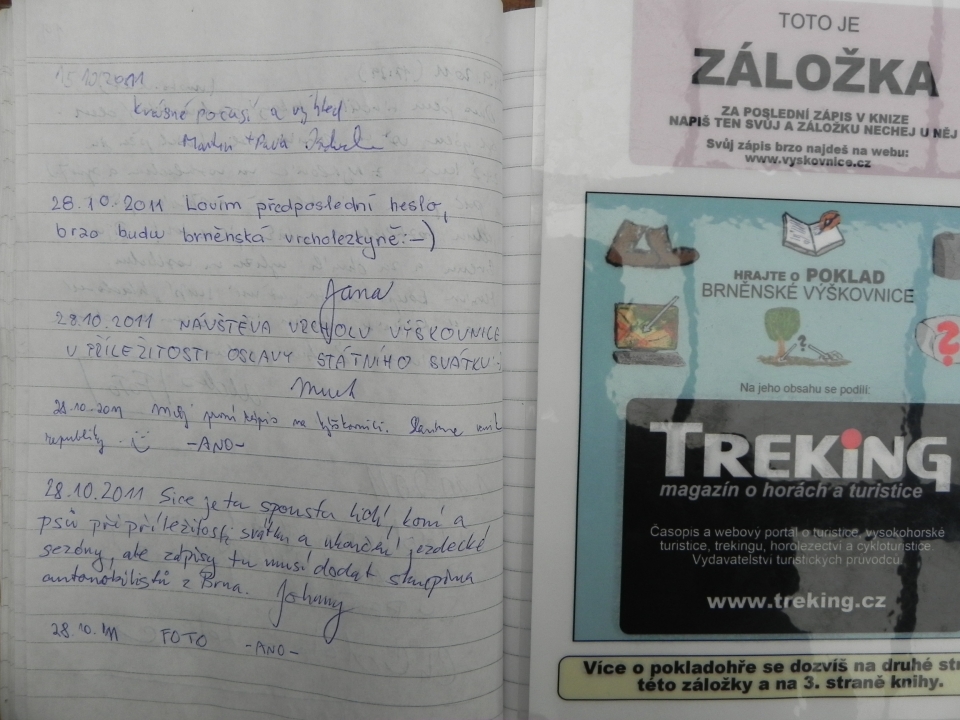 15.10.2011
Krásné počasí a výhled
Martin + Pavla
28.10.2011 Lovím předposlední heslo,
brzo budu brněnská vrcholezkyně:-)
Jana
28.10.2011 NÁVŠTĚVA VRCHOLU VÝŠKOVNICE
V PŘÍLEŽITOSTI OSLAVY STÁTNÍHO SVÁTKU:
28.10.2011 Můj první zápis na Výškovnici. Slavíme vznik
republiky. -ANO-
28.10.2011 Sice je tu spousta lidí, koní a
psů při příležitosti svátku a ukončení jezdecké
sezóny, ale zápisy tu musí dodat skupina
automobilistů z Brna. Johnny
28.10.11 FOTO -ANO-
TOTO JE
ZÁLOŽKA
ZA POSLEDNÍ ZÁPIS V KNIZE
NAPIŠ TEN SVŮJ A ZÁLOŽKU NECHEJ U NĚJ
Svůj zápis brzo najdeš na webu:
www.vyskovnice.cz
HRAJTE O POKLAD
BRNĚNSKÉ VÝŠKOVNICE
Na jeho obsahu se podílí:
TREKING
magazín o horách a turistice
Časopis a webový portál o turistice, vysokohorské
turistice, trekingu, horolezectví a cykloturistice.
Vydavatelství turistických průvodců.
www.treking.cz
Více o pokladohře se dozvíš na druhé str
této záložky a na 3. straně knihy.